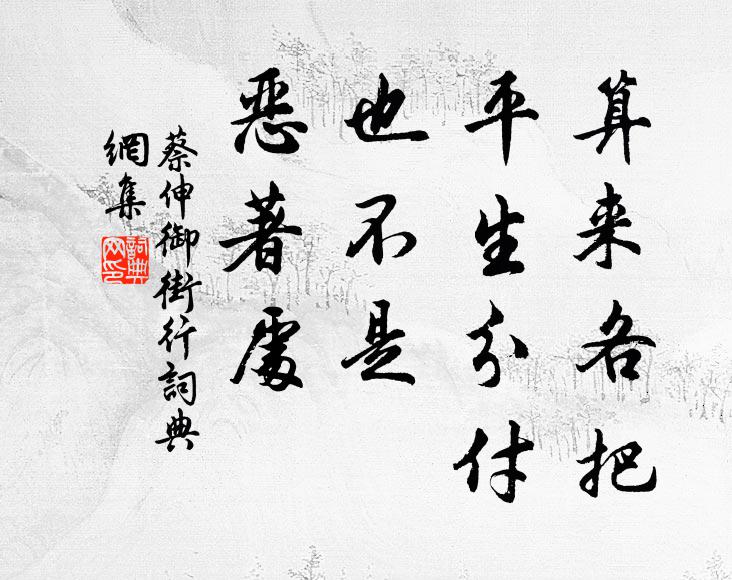 算来各把
平生分付
也不是
惡著處
蔡伸御街行詞典
網集
詞典
网印